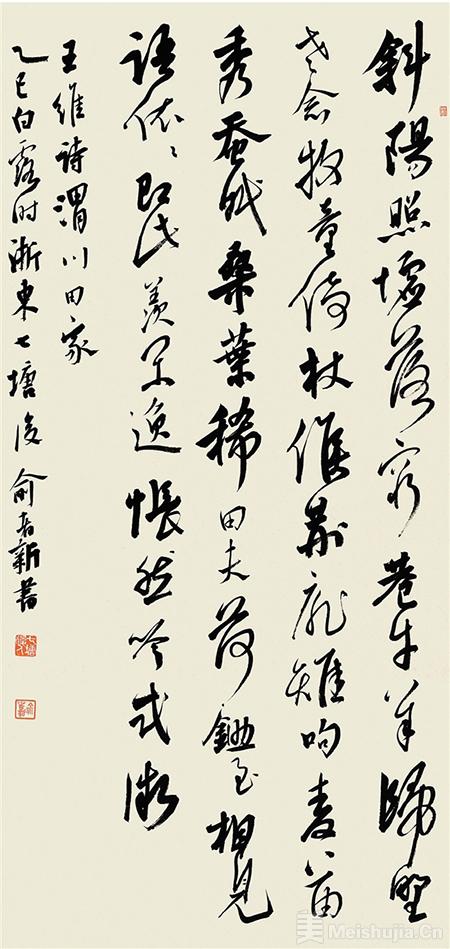 斜陽照墟落窮巷牛羊歸野
老念牧童倚杖候荊扉雉呴麥苗
秀蚕眠桑葉稀田夫荷鋤至相見
語依〻即此羨閑逸悵然吟式微
王維詩渭川田家
乙巳白露时浙東七塘後俞新書
美 Meishujia.Cn